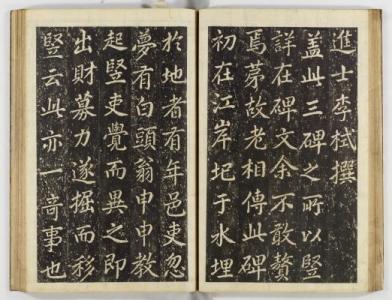 進士李栻撰
盖此三碑之所以竪
詳在碑文余不敢贅
焉茅故老相傳此碑
初在江岸圮于水埋
於地者有年邑吏忽
夢有白頭翁申申教
起竪吏覺而異之即
出財募力遂掘而移
竪云此亦一奇事也